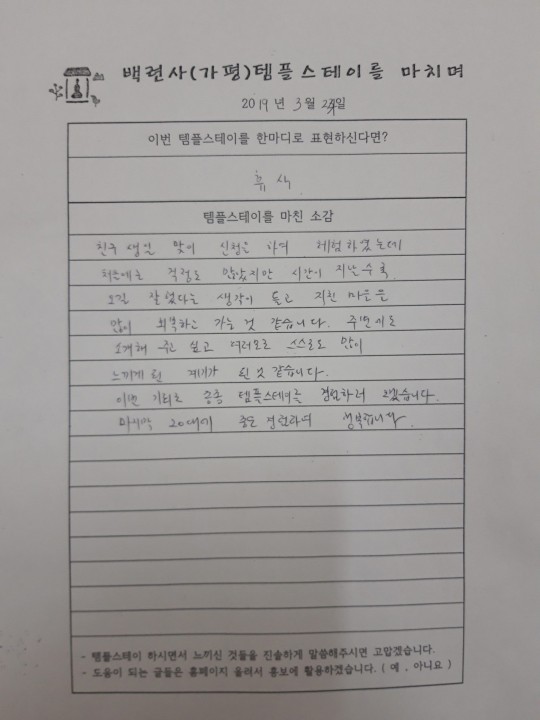 백련사(가평)템플스테이를 마치며
2019년 3월 24일
이번 템플스테이를 한마디로 표현하신다면?
휴식
템플스테이를 마친 소감
친구 생일 맞이 신청을 하여 체험하였는데
처음에는 걱정도 많았지만 시간이 지날수록
오길 잘 었다는 생각이 들고 지친 마음을
많이 회복하고 가는 것 같습니다. 주변에도
소개해 주고 싶고 여러모로 스스로도 많이
느끼게 된 계기가 된 것 같습니다.
이번 기회로 종종 템플스테이를 경험하러 오겠습니다.
마지막 20대에 좋은 경험하여 행복합니다.
- 템플스테이 하시면서 느끼신 것들을 진솔하게 말씀해주시면 고맙겠습니다.
- 도움이 되는 글들은 홈페이지 올려서 홍보에 활용하겠습니다. ( 예 , 아니요 )